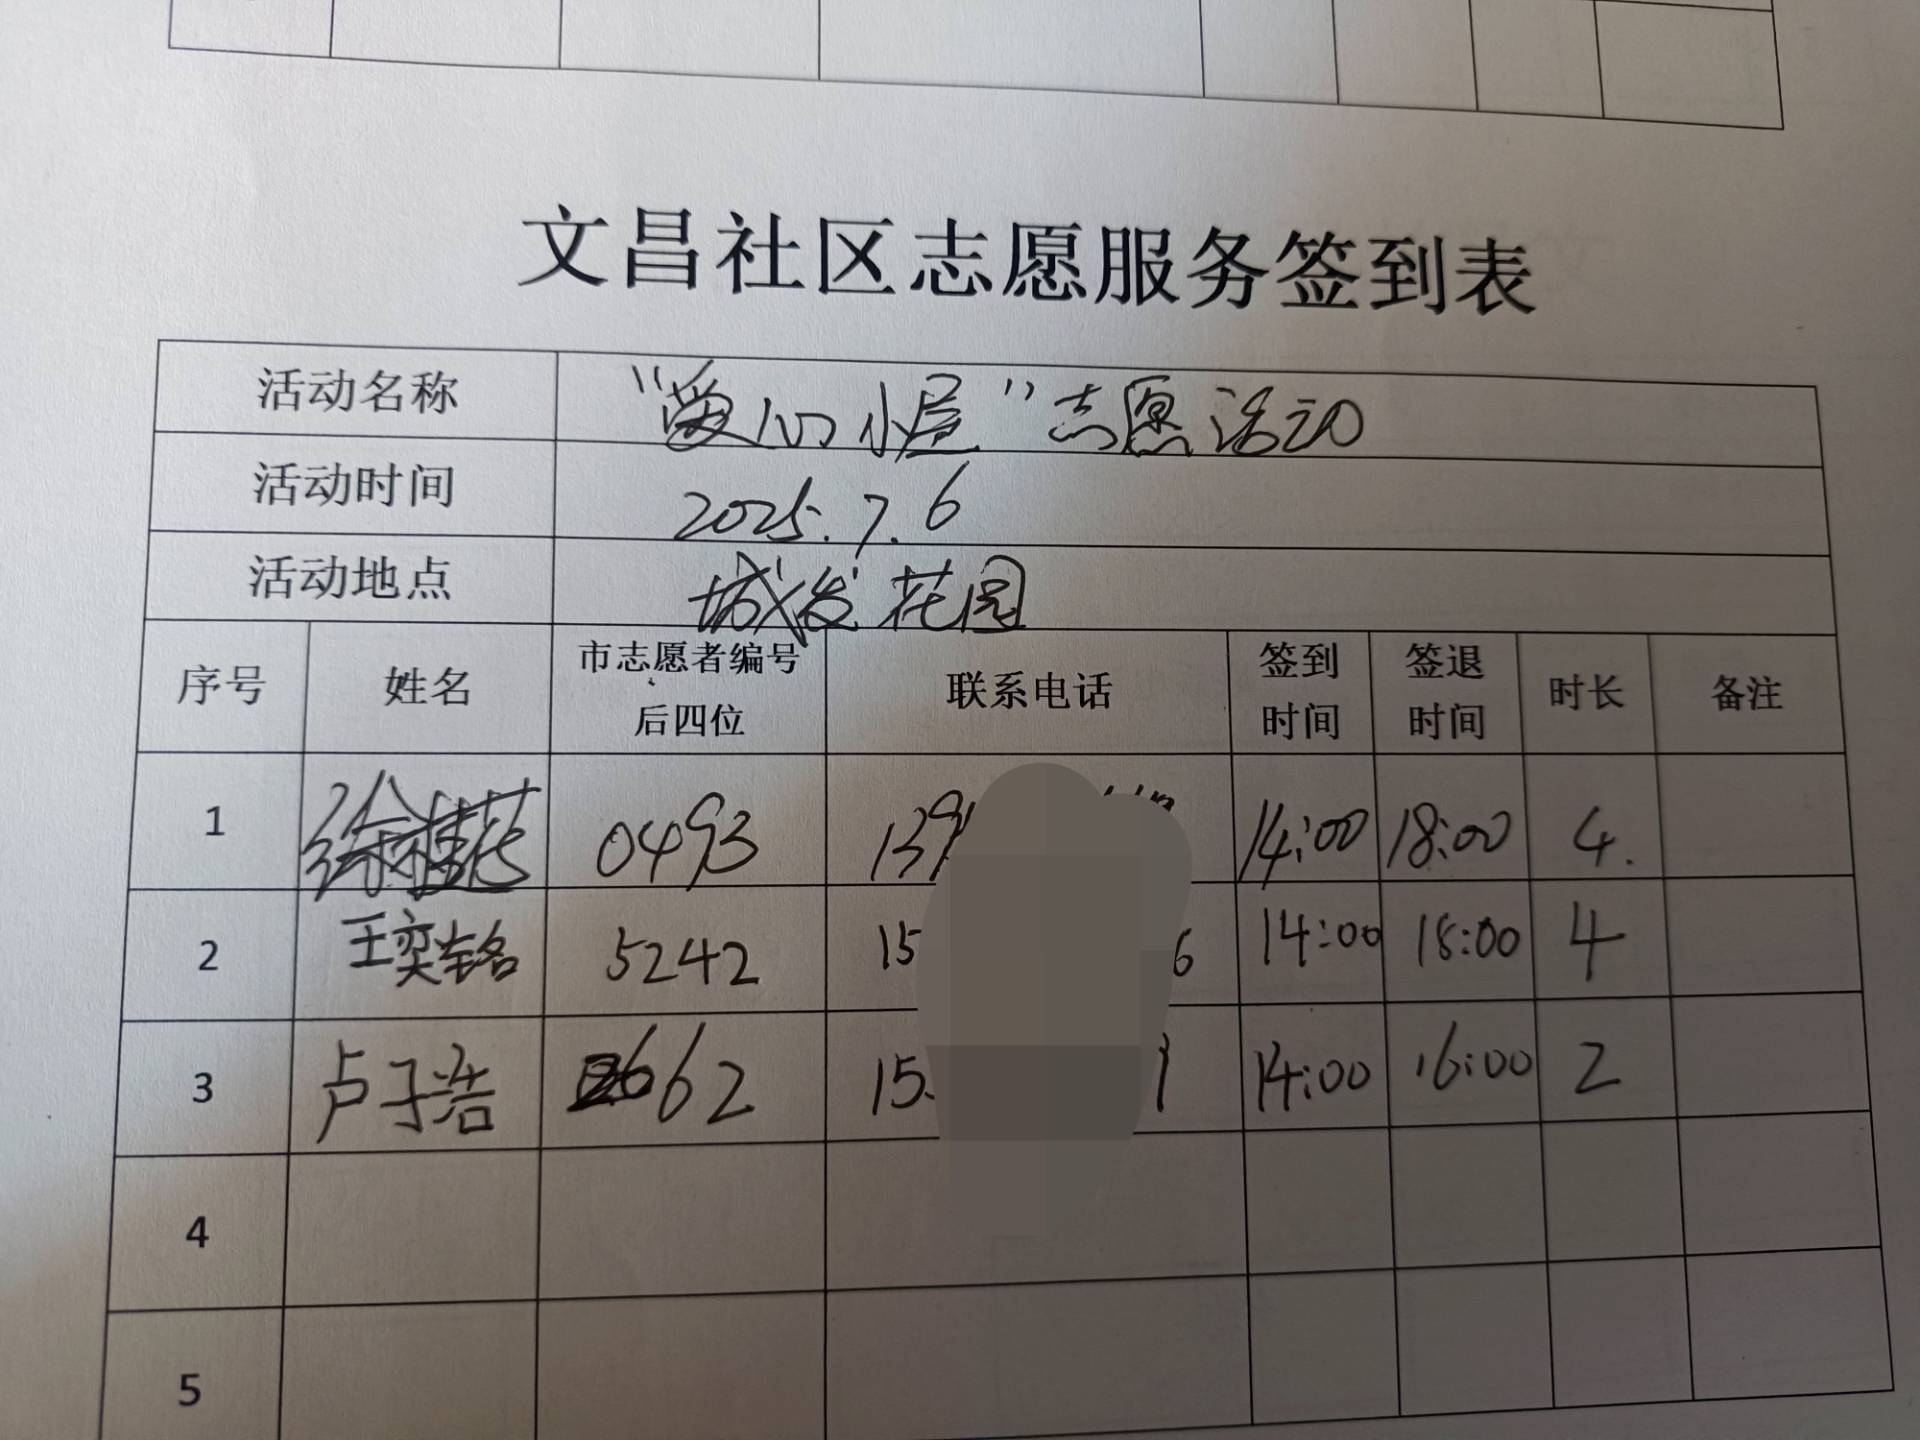 文昌社区志愿服务签到表
活动名称 “爱心小屋”志愿活动
活动时间 2025.7.6
活动地点 城发花园
序号 姓名 市志愿者编号后四位 联系电话 签到时间 签退时间 时长 备注
1 徐桂花 0493 139 14:00 18:00 4.
2 王奕 5242 15 6 14:00 18:00 4
3 卢子浩 662 15 1 14:00 16:00 2
4
5